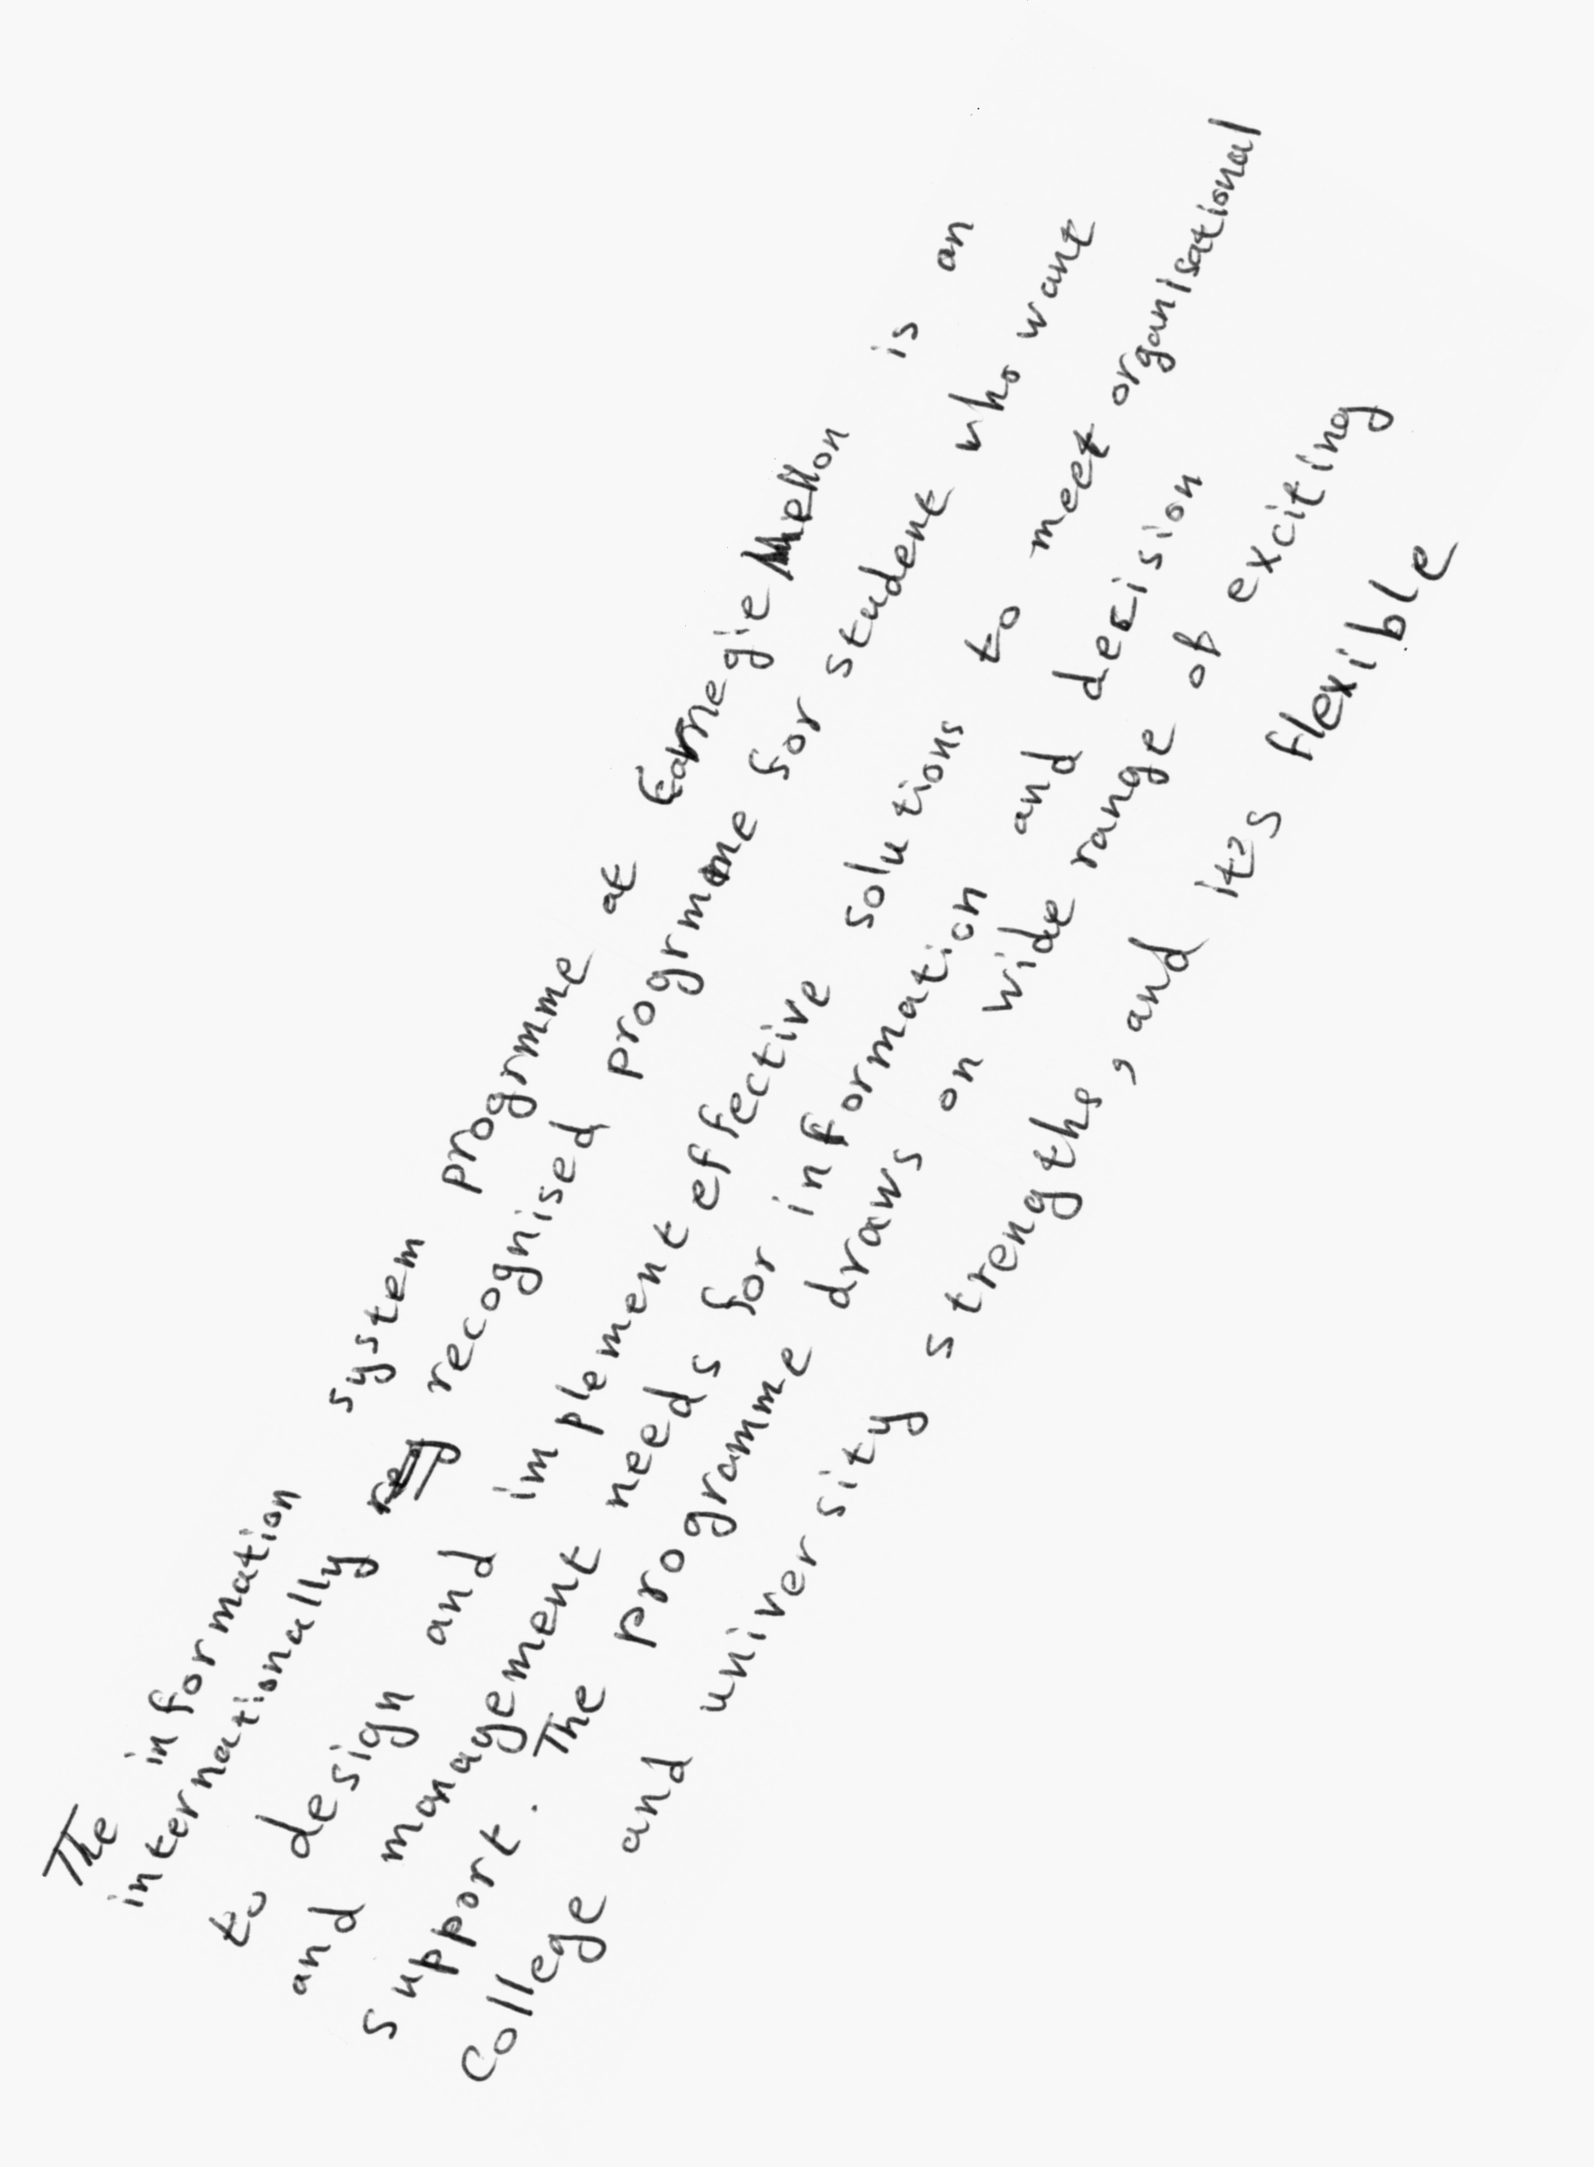 The information system progrmme at Carnegie Mellon is an
internationally recognised progrmme for student who want
to design and implement effective solutions to meet organisational
and management needs for information and decision
support. The programme draws on wide range of exciting
College and university strengths, and its flexible